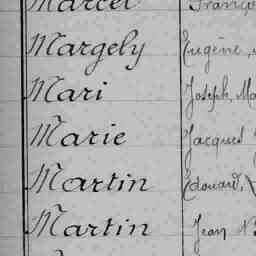 Marcel Franço
Margely Eugène,
Mari Joseph, Ma
Marie Jacques
Martin Edouard,
Martin Jean